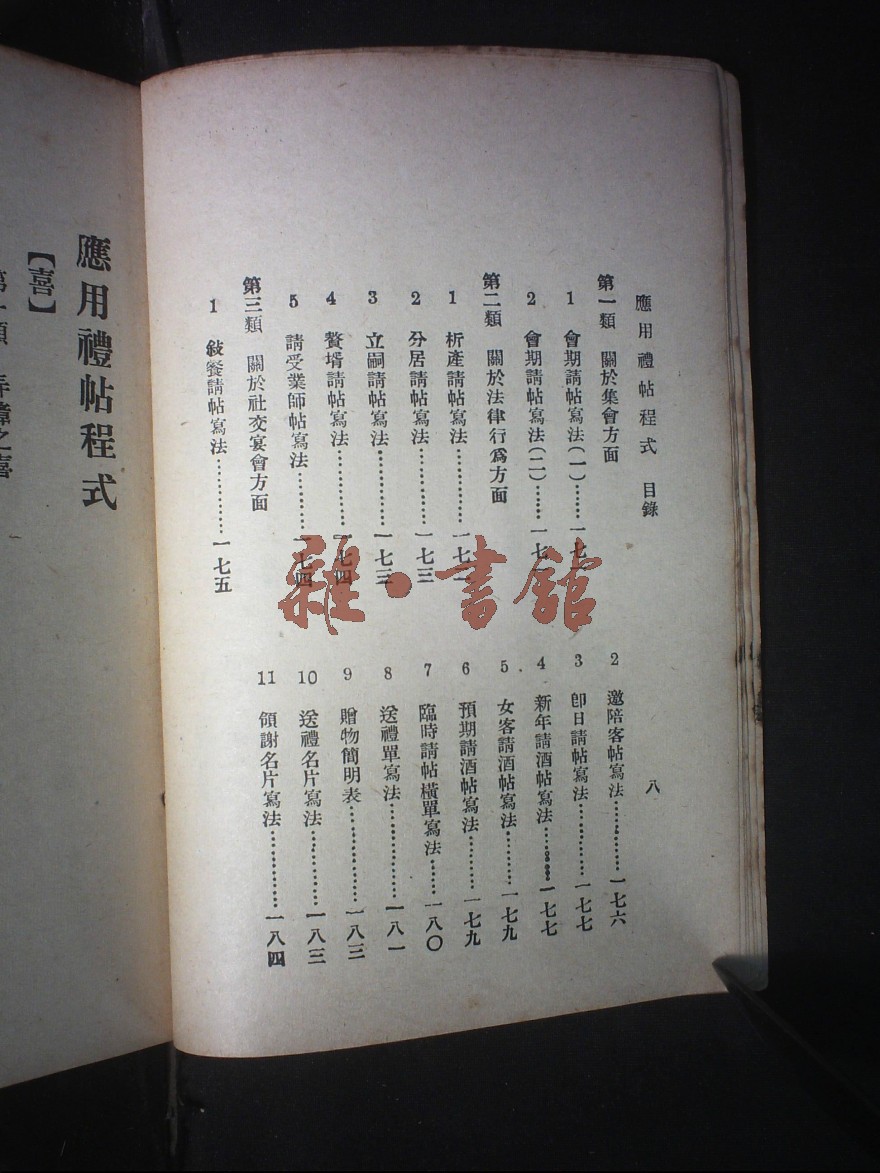 應用禮帖程式　目錄
八
第一類　關於集會方面
1　會期請帖寫法(一)………一七
2　會期請帖寫法(二)……一七
第二類　關於法律行爲方面
1　析產請帖寫法…………一七
2　分居請帖寫法…………一七三
3　立嗣請帖寫法…………一七三
4　贅壻請帖寫法…………一七四
5　請受業師帖寫法………一七四
第三類　關於社交宴會方面
1　敍餐請帖寫法…………一七五
2　邀陪客帖寫法…………一七六
3　卽日請帖寫法…………一七七
4　新年請酒帖寫法………一七七
5　女客請酒帖寫法………一七九
6　預期請酒帖寫法………一七九
7　臨時請帖橫單寫法……一八〇
8　送禮單寫法……………一八一
9　贈物簡明表……………一八三
10　送禮名片寫法…………一八三
11　領謝名片寫法…………一八四
應用禮帖程式
【喜】
弄璋之喜
雜·書館